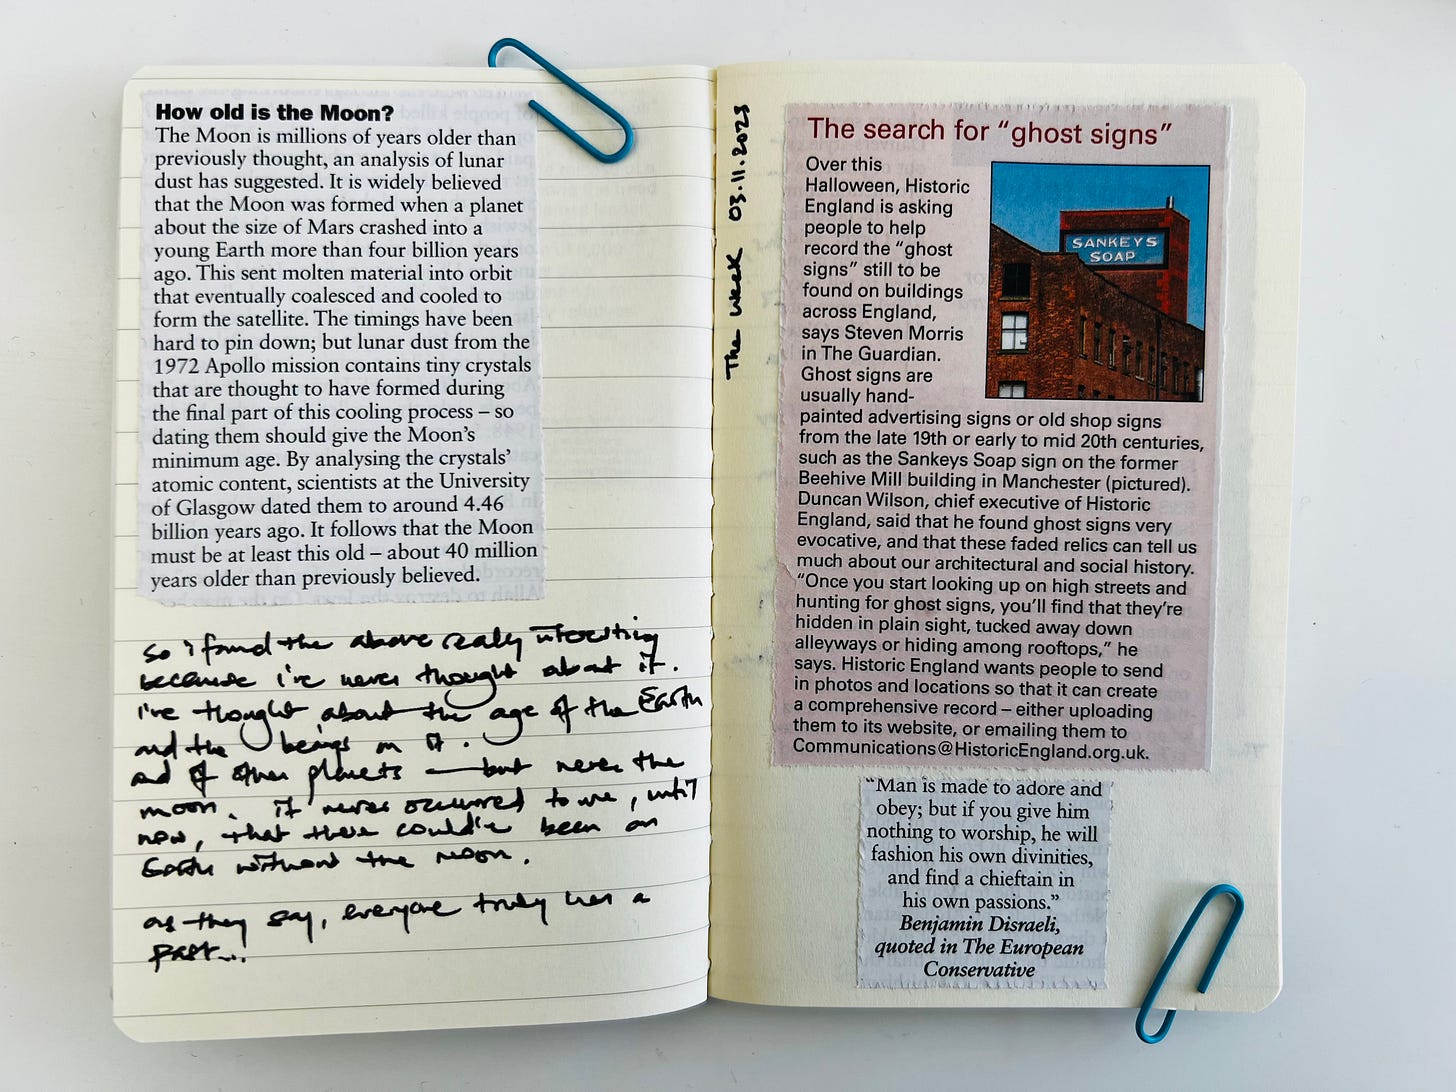 How old is the Moon?
The Moon is millions of years older than
previously thought, an analysis of lunar
dust has suggested. It is widely believed
that the Moon was formed when a planet
about the size of Mars crashed into a
young Earth more than four billion years
ago. This sent molten material into orbit
that eventually coalesced and cooled to
form the satellite. The timings have been
hard to pin down; but lunar dust from the
1972 Apollo mission contains tiny crystals
that are thought to have formed during
the final part of this cooling process – so
dating them should give the Moon's
minimum age. By analysing the crystals'
atomic content, scientists at the University
of Glasgow dated them to around 4.46
billion years ago. It follows that the Moon
must be at least this old – about 40 million
years older than previously believed.
So i found the above really interesting
because i've never thought about it.
i've thought about the age of the Earth
and the beings on it.
and of other planets — but never the
moon. it never occurred to me, until
now, that there could've been an
Earth without the moon.
as they say, everyone truly has a
past...
The Week 03.11.2023
The search for "ghost signs"
Over this
Halloween, Historic
England is asking
people to help
record the "ghost
signs" still to be
found on buildings
across England,
says Steven Morris
in The Guardian.
Ghost signs are
usually hand-
painted advertising signs or old shop signs
from the late 19th or early to mid 20th centuries,
such as the Sankeys Soap sign on the former
Beehive Mill building in Manchester (pictured).
Duncan Wilson, chief executive of Historic
England, said that he found ghost signs very
evocative, and that these faded relics can tell us
much about our architectural and social history.
"Once you start looking up on high streets and
hunting for ghost signs, you'll find that they're
hidden in plain sight, tucked away down
alleyways or hiding among rooftops," he
says. Historic England wants people to send
in photos and locations so that it can create
a comprehensive record – either uploading
them to its website, or emailing them to
Communications@HistoricEngland.org.uk.
SANKEYS
SOAP
"Man is made to adore and
obey; but if you give him
nothing to worship, he will
fashion his own divinities,
and find a chieftain in
his own passions."
Benjamin Disraeli,
quoted in The European
Conservative